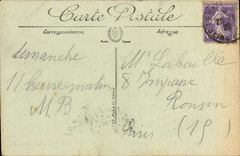 Carte Postale
Correspondance
Adresse
dimanche
11 heure matin
M B
Mr Labaille
8 Impasse
Ronsin
Paris (15)